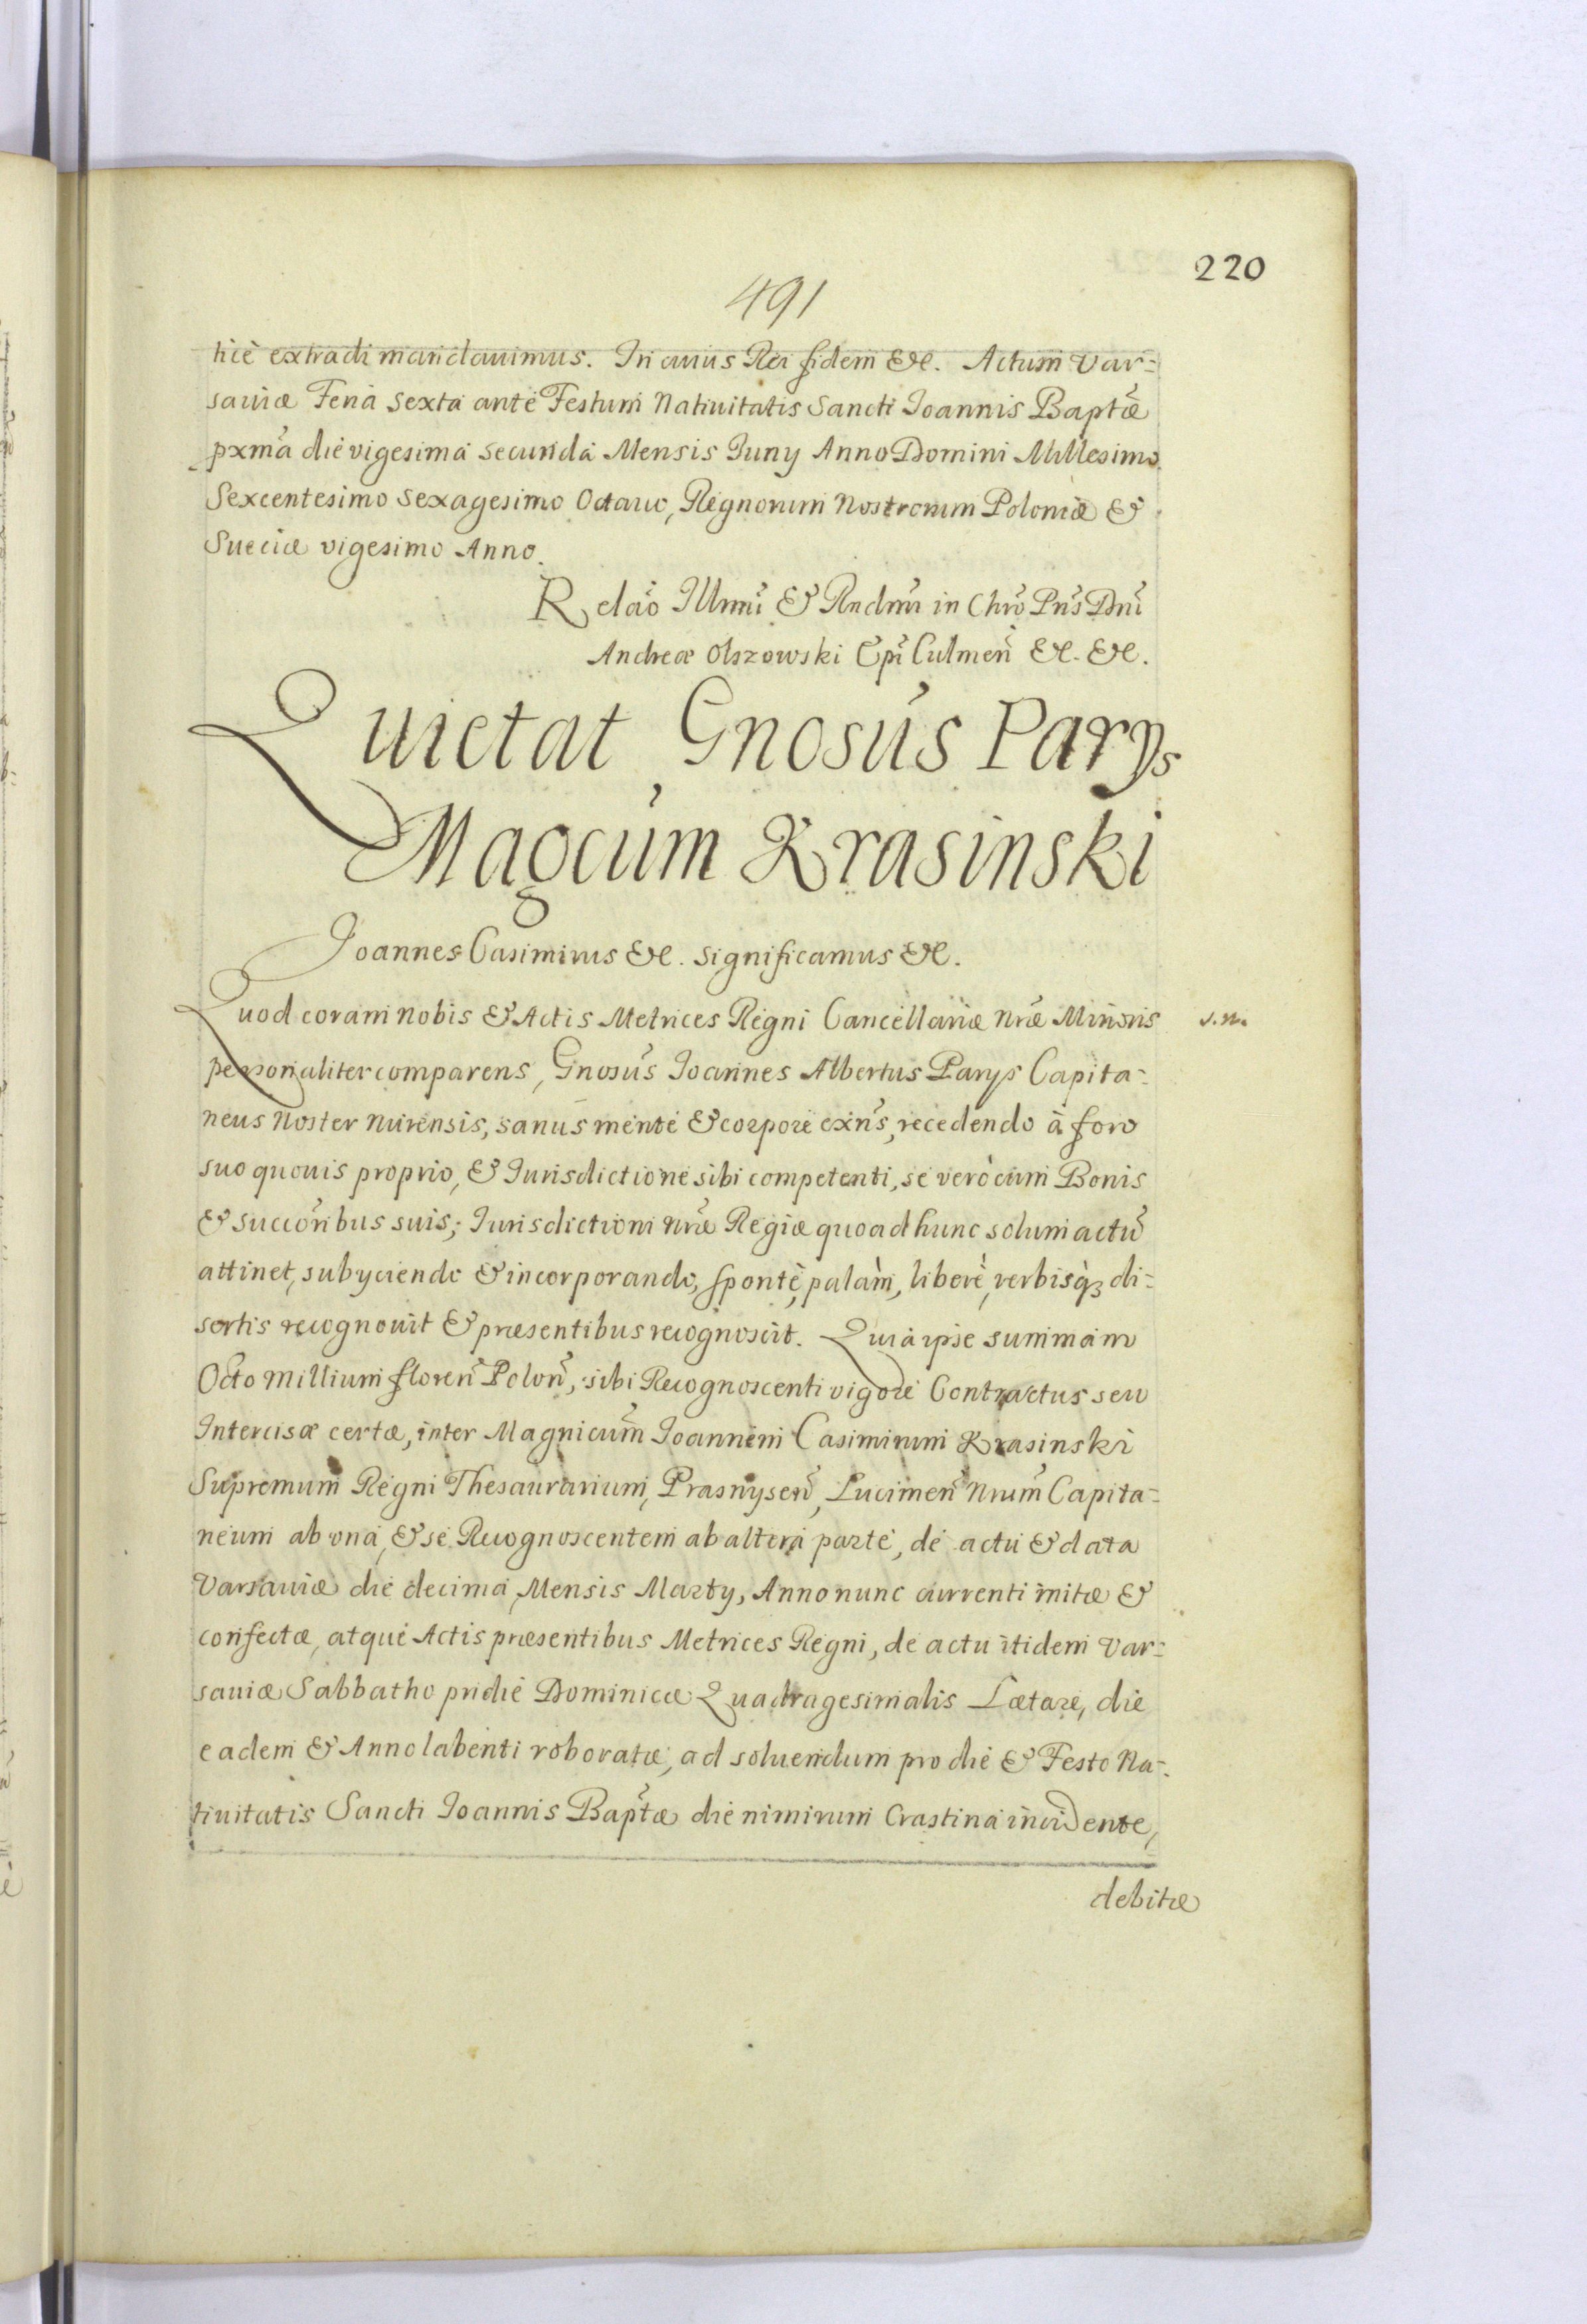 220
491
tice extradi mandauimus. In cuius Rei fidem &c. Actum Var=
sauiæ Feria Sexta ante Festum Natiuitatis Sancti Joannis Baptæ
pxma die vigesima secunda Mensis Juny Anno Domini Millesimo
Sexcentesimo Sexagesimo Octauo, Regnorum Nostrorum Poloniæ &
Sueciæ vigesimo Anno.
Relao Illmi & Rndmi in Chro Pris Dni
Andreæ Olszowski Epi Culmen &c. &c.
Quietat Gnosus Parys
Magcum Krasinski
Joannes Casimirus &c. significamus &c.
Quod coram nobis & Actis Metrices Regni Cancellariæ nræ Minoris
s.n.
personaliter comparens, Gnosus Joannes Albertus Parys Capita=
neus Noster Nurensis, sanus mente & corpore exns, recedendo à foro
suo quouis proprio, & Jurisdictione sibi competenti, se verò cum Bonis
& succoribus suis, Jurisdictioni nræ Regiæ quoad hunc solum actu
attinet, subyciendo & incorporando, spontè, palàm, liberè, verbisq; di=
sertis recognouit & præsentibus recognoscit. Quia ipse summam
Octo millium floren Polon, sibi Recognoscenti vigore Contractus seu
Intercisæ certæ, inter Magnicum Joannem Casimirum Krasinski
Supremum Regni Thesaurarium, Prasnysen, Lucimen Nrum Capita=
neum ab vna, & se Recognoscentem ab altera parte, de actu & data
Varsauiæ die decima Mensis Marty, Anno nunc currenti initæ &
confectæ, atque Actis præsentibus Metrices Regni, de actu itidem Var=
sauiæ Sabbatho pridie Dominicæ Quadragesimalis Lætare, die
eadem & Anno labenti roboratæ, ad soluendum pro die & Festo Na=
tiuitatis Sancti Joannis Baptæ die nimirum Crastina incidente,
debitæ